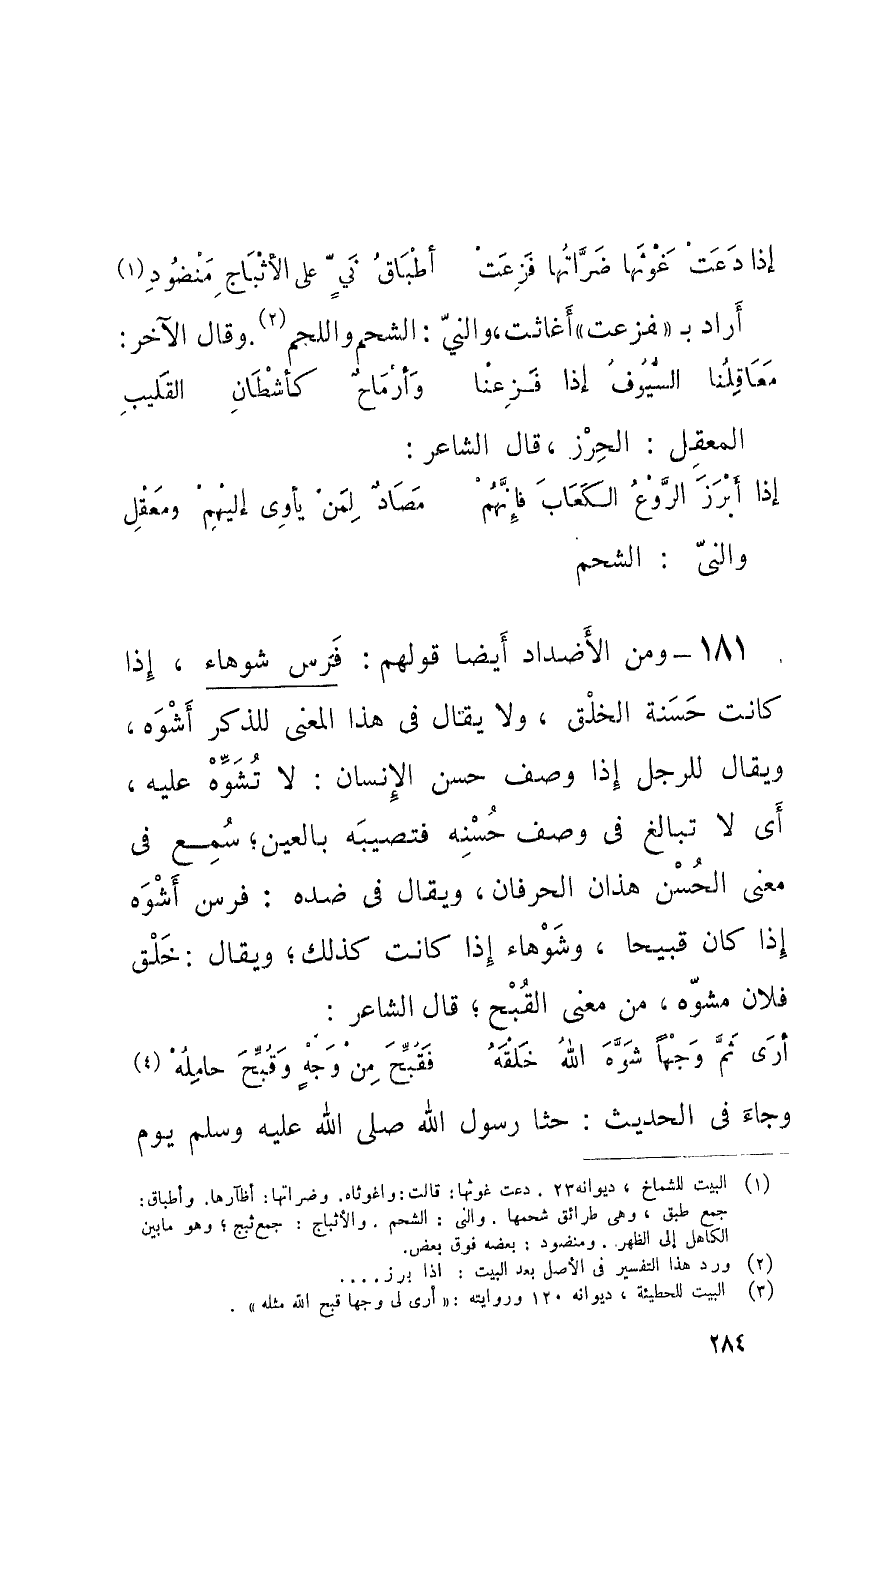 إذا دَعَتْ غَوْثَها ضَرَّاتُها فَزِعَتْ أطْبَاقُ نَيٍّ على الأثْبَاجِ مَنْضُودِ (١)
أَراد بـ «فزعت» أَغاثت، والنيّ : الشحم واللحم (٢). وقال الآخر :
مَعَاقِلُنا السُّيُوفُ إذا فَـزِعْنا وَأرْمَاحٌ كأشْطَانِ القَليبِ
المعقِل : الحِرْز ، قال الشاعر :
إذا أَبْرَزَ الرَّوْعُ الكَعَابَ فإِنَّهُمْ مَصَادٌ لِمَنْ يأوِى إليْهِمْ ومَعْقِل
والنىّ : الشحم
١٨١ – ومن الأَضداد أَيضا قولهم : فَرَس شوهاء ، إذا
كانت حَسَنة الخلْق ، ولا يقال فى هذا المعنى للذكر أَشْوَه ،
ويقال للرجل إذا وصف حسن الإِنسان : لا تُشَوِّهْ عليه ،
أَى لا تبالغ فى وصف حُسْنِه فتصيبَه بالعين؛ سُمِـع فى
معنى الحُسْن هذان الحرفان، ويقال فى ضده : فرس أَشْوَه
إذا كان قبيحا ، وشَوْهاء إذا كانت كذلك؛ ويقال : خَلْق
فلان مشوّه ، من معنى القُبْح ؛ قال الشاعر :
أرَى ثَمَّ وَجْهاً شَوَّهَ اللهُ خَلْقَهُ فَقُبِّحَ مِنْ وَجْهٍ وَقُبِّحَ حامِلُهْ (٤)
وجاءَ فى الحديث : حثا رسول الله صلى الله عليه وسلم يوم
(١) البيت للشماخ ، ديوانه ٢٣ . دعت غوثها : قالت : واغوثاه. وضراتها : أظآرها. وأطباق :
جمع طبق ، وهى طرائق شحمها . والنى : الشحم . والأثباج : جمع ثبج ؛ وهو مابين
الكاهل إلى الظهر . ومنضود : بعضه فوق بعض.
(٢) ورد هذا التفسير فى الأصل بعد البيت : اذا برز . . . .
(٣) البيت للحطيئة ، ديوانه ١٢٠ وروايته : « أرى لى وجها قبح الله مثله » .
٢٨٤